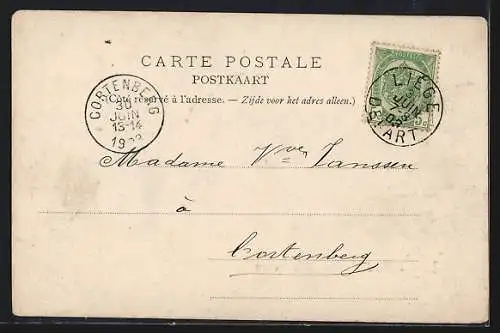 CARTE POSTALE
POSTKAART
(Côté réservé à l'adresse. — Zijde voor het adres alleen.)
CORTENBERG
30
JUIN
13-14
LIEGE
JUIN
DEPART
Madame Vve Janssen
à
Cortenberg